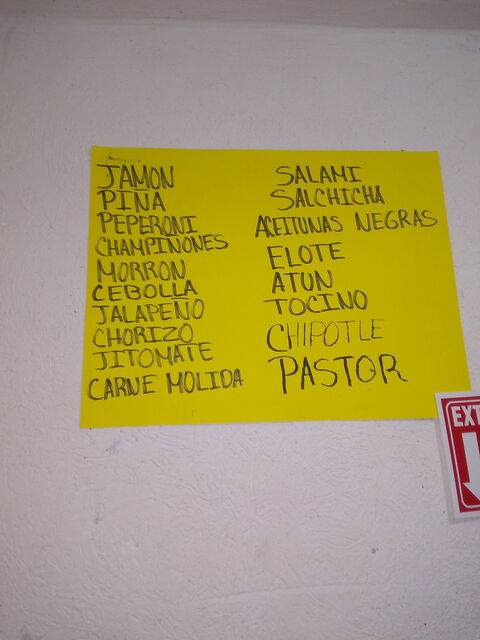 JAMON
PIÑA
PEPERONI
CHAMPIÑONES
MORRON
CEBOLLA
JALAPEÑO
CHORIZO
JITOMATE
CARNE MOLIDA
SALAMI
SALCHICHA
ACEITUNAS NEGRAS
ELOTE
ATUN
TOCINO
CHIPOTLE
PASTOR
EXT